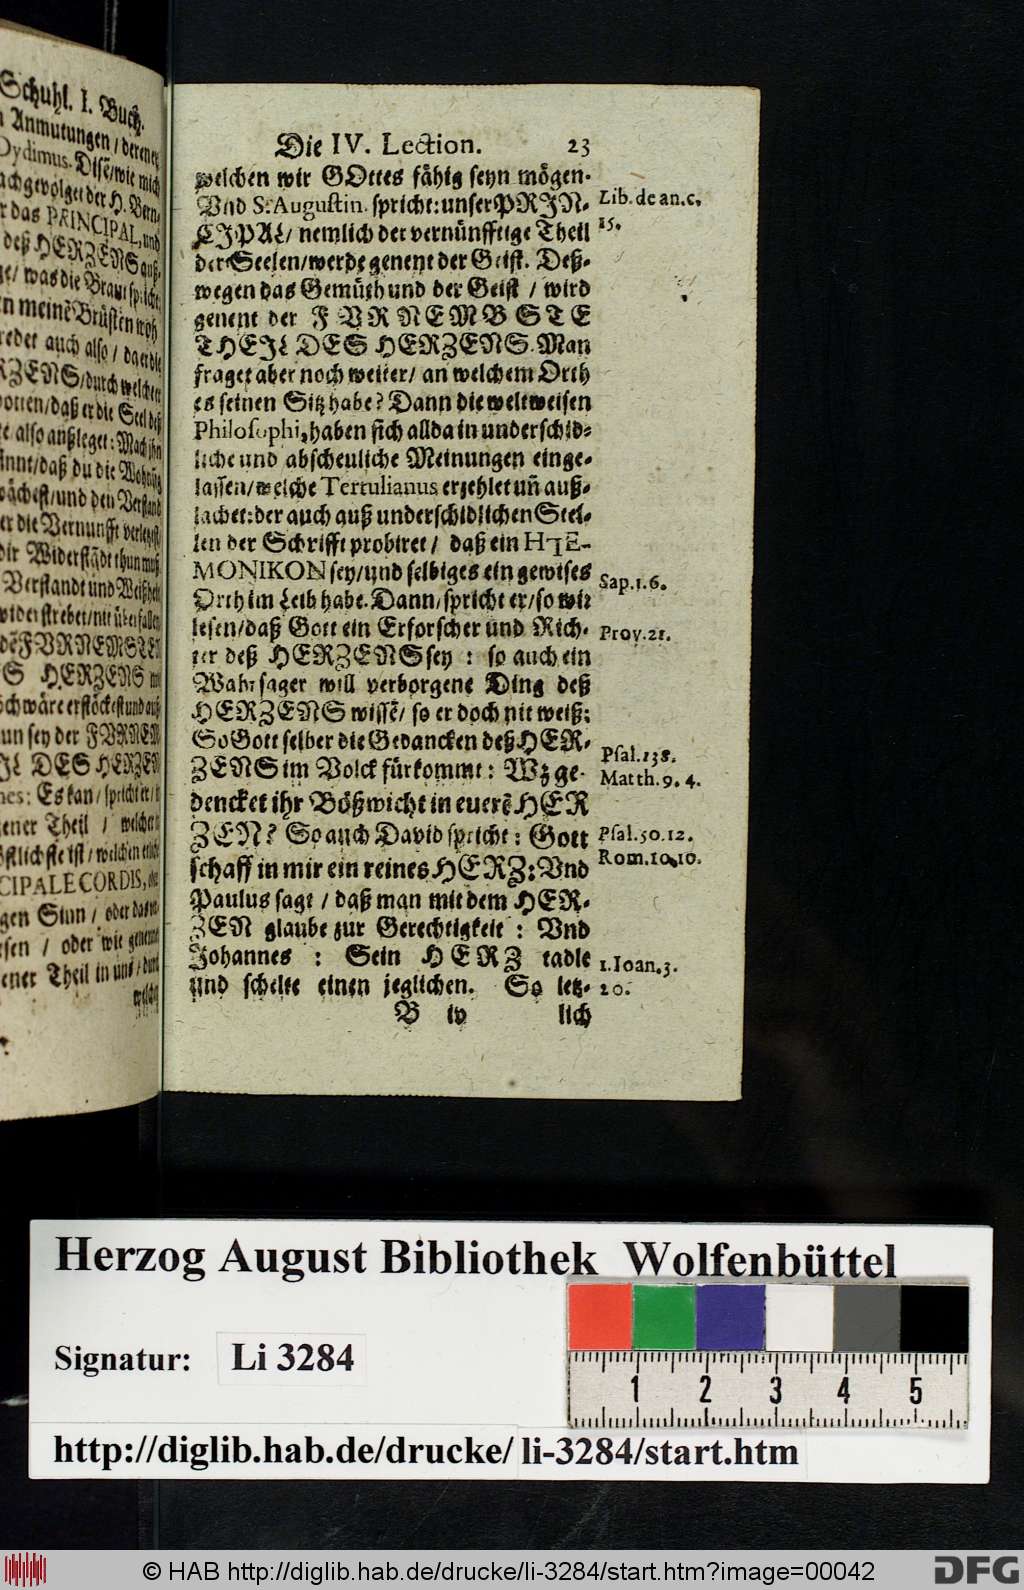 Schuhl. I. Buch.
Anmutungen / deren
Dydimus. Disẽ / wie mich
nachgevolget der H. Bern-
das PRINCIPAL, und
deß HERZENS auß-
was die Braut spricht
meinẽ Brüsten
redet auch also / da er die
durch welcher
daß er die Seel deß
also außleget: Mach ihn
daß du die
und den Verstand
die Vernunfft verletzest
dir Widerstãd thun muß
Verstandt und Weißheit
widerstrebet / nit überfallen
FVRNEMSTEN
HERZENS
erstöckest und auß
nun sey der FVRNEM
DES HERZEN
Es kan / spricht er /
Theil / welchen
ist / welchen
CIPALE CORDIS,
Sinn / oder das
oder wie genennt
Theil in uns / durch
welchẽ
Die IV. Lection. 23
welchen wir GOttes fähig seyn mögen.
Vnd S. Augustin. spricht: unser PRIN-
CIPAL / nemlich der vernünfftige Theil
der Seelen / werde genent der Geist. Deß-
wegen das Gemüth und der Geist / wird
genent der FVRNEMBSTE
THEIL DES HERZENS. Man
fraget aber noch weiter / an welchem Orth
es seinen Sitz habe? Dann die weltweisen
Philosophi, haben sich allda in underschid-
liche und abscheuliche Meinungen einge-
lassen / welche Tertulianus erzehlet uñ auß-
lachet: der auch auß underschidlichen Stel-
len der Schrifft probiret / daß ein HEGE-
MONIKON sey / und selbiges ein gewises
Orth im Leib habe. Dann / spricht er / so wir
lesen / daß Gott ein Erforscher und Rich-
ter deß HERZENS sey : so auch ein
Wahrsager will verborgene Ding deß
HERZENS wissẽ / so er doch nit weiß:
So Gott selber die Gedancken deß HER-
ZENS im Volck fürkommt: Wz ge-
dencket ihr Bößwicht in euerẽ HER
ZEN? So auch David spricht: Gott
schaff in mir ein reines HERZ: Vnd
Paulus sagt / daß man mit dem HER-
ZEN glaube zur Gerechtigkeit : Vnd
Johannes : Sein HERZ tadle
und schelte einen jeglichen. So letz-
B iv lich
Lib. de an. c.
15.
Sap. 1. 6.
Prov. 21.
Psal. 138.
Matth. 9. 4.
Psal. 50. 12.
Rom. 10. 10.
1. Ioan. 3.
20.
Herzog August Bibliothek Wolfenbüttel
Signatur: Li 3284
1 2 3 4 5
http://diglib.hab.de/drucke/ li-3284/start.htm
© HAB http://diglib.hab.de/drucke/li-3284/start.htm?image=00042
DFG